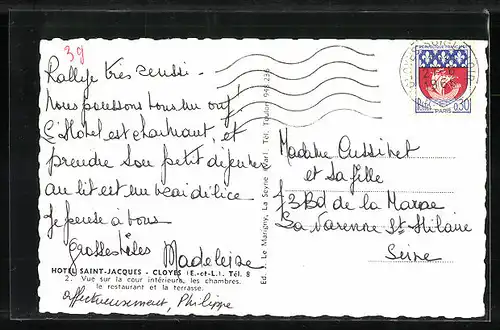 39
Rallye très réussi -
Nous poussons tous un ouf.
L'Hôtel est charmant, et
prendre son petit déjeuner
au lit est un vrai délice
Je pense à vous
grosses bises Madeleine
HOTEL SAINT-JACQUES - CLOYES (E.-et-L.). Tél. 8
2. Vue sur la cour intérieure, les chambres,
le restaurant et la terrasse.
affectueusement, Philippe
Ed. Le Marigny, La Seyne (Var). Tél. Toulon
REPUBLIQUE FRANÇAISE
0,30
PARIS
Madame Cussinet
et sa fille
73 Bd de la Marne
La Varenne St-Hilaire
Seine